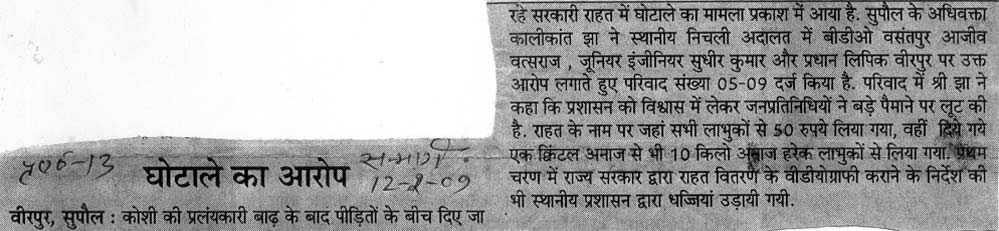 पृष्ठ-13
घोटाले का आरोप
12-2-09
वीरपुर, सुपौल : कोशी की प्रलंयकारी बाढ़ के बाद पीड़ितों के बीच दिए जा
रहे सरकारी राहत में घोटाले का मामला प्रकाश में आया है. सुपौल के अधिवक्ता
कालीकांत झा ने स्थानीय निचली अदालत में बीडीओ वसंतपुर आजीव
वत्सराज , जूनियर इंजीनियर सुधीर कुमार और प्रधान लिपिक वीरपुर पर उक्त
आरोप लगाते हुए परिवाद संख्या 05-09 दर्ज किया है. परिवाद में श्री झा ने
कहा कि प्रशासन को विश्वास में लेकर जनप्रतिनिधियों ने बड़े पैमाने पर लूट की
है. राहत के नाम पर जहां सभी लाभुकों से 50 रुपये लिया गया, वहीं दिये गये
एक क्विंटल अनाज से भी 10 किलो अनाज हरेक लाभुकों से लिया गया. प्रथम
चरण में राज्य सरकार द्वारा राहत वितरण के वीडीयोग्राफी कराने के निर्देश की
भी स्थानीय प्रशासन द्वारा धज्जियां उड़ायी गयी.